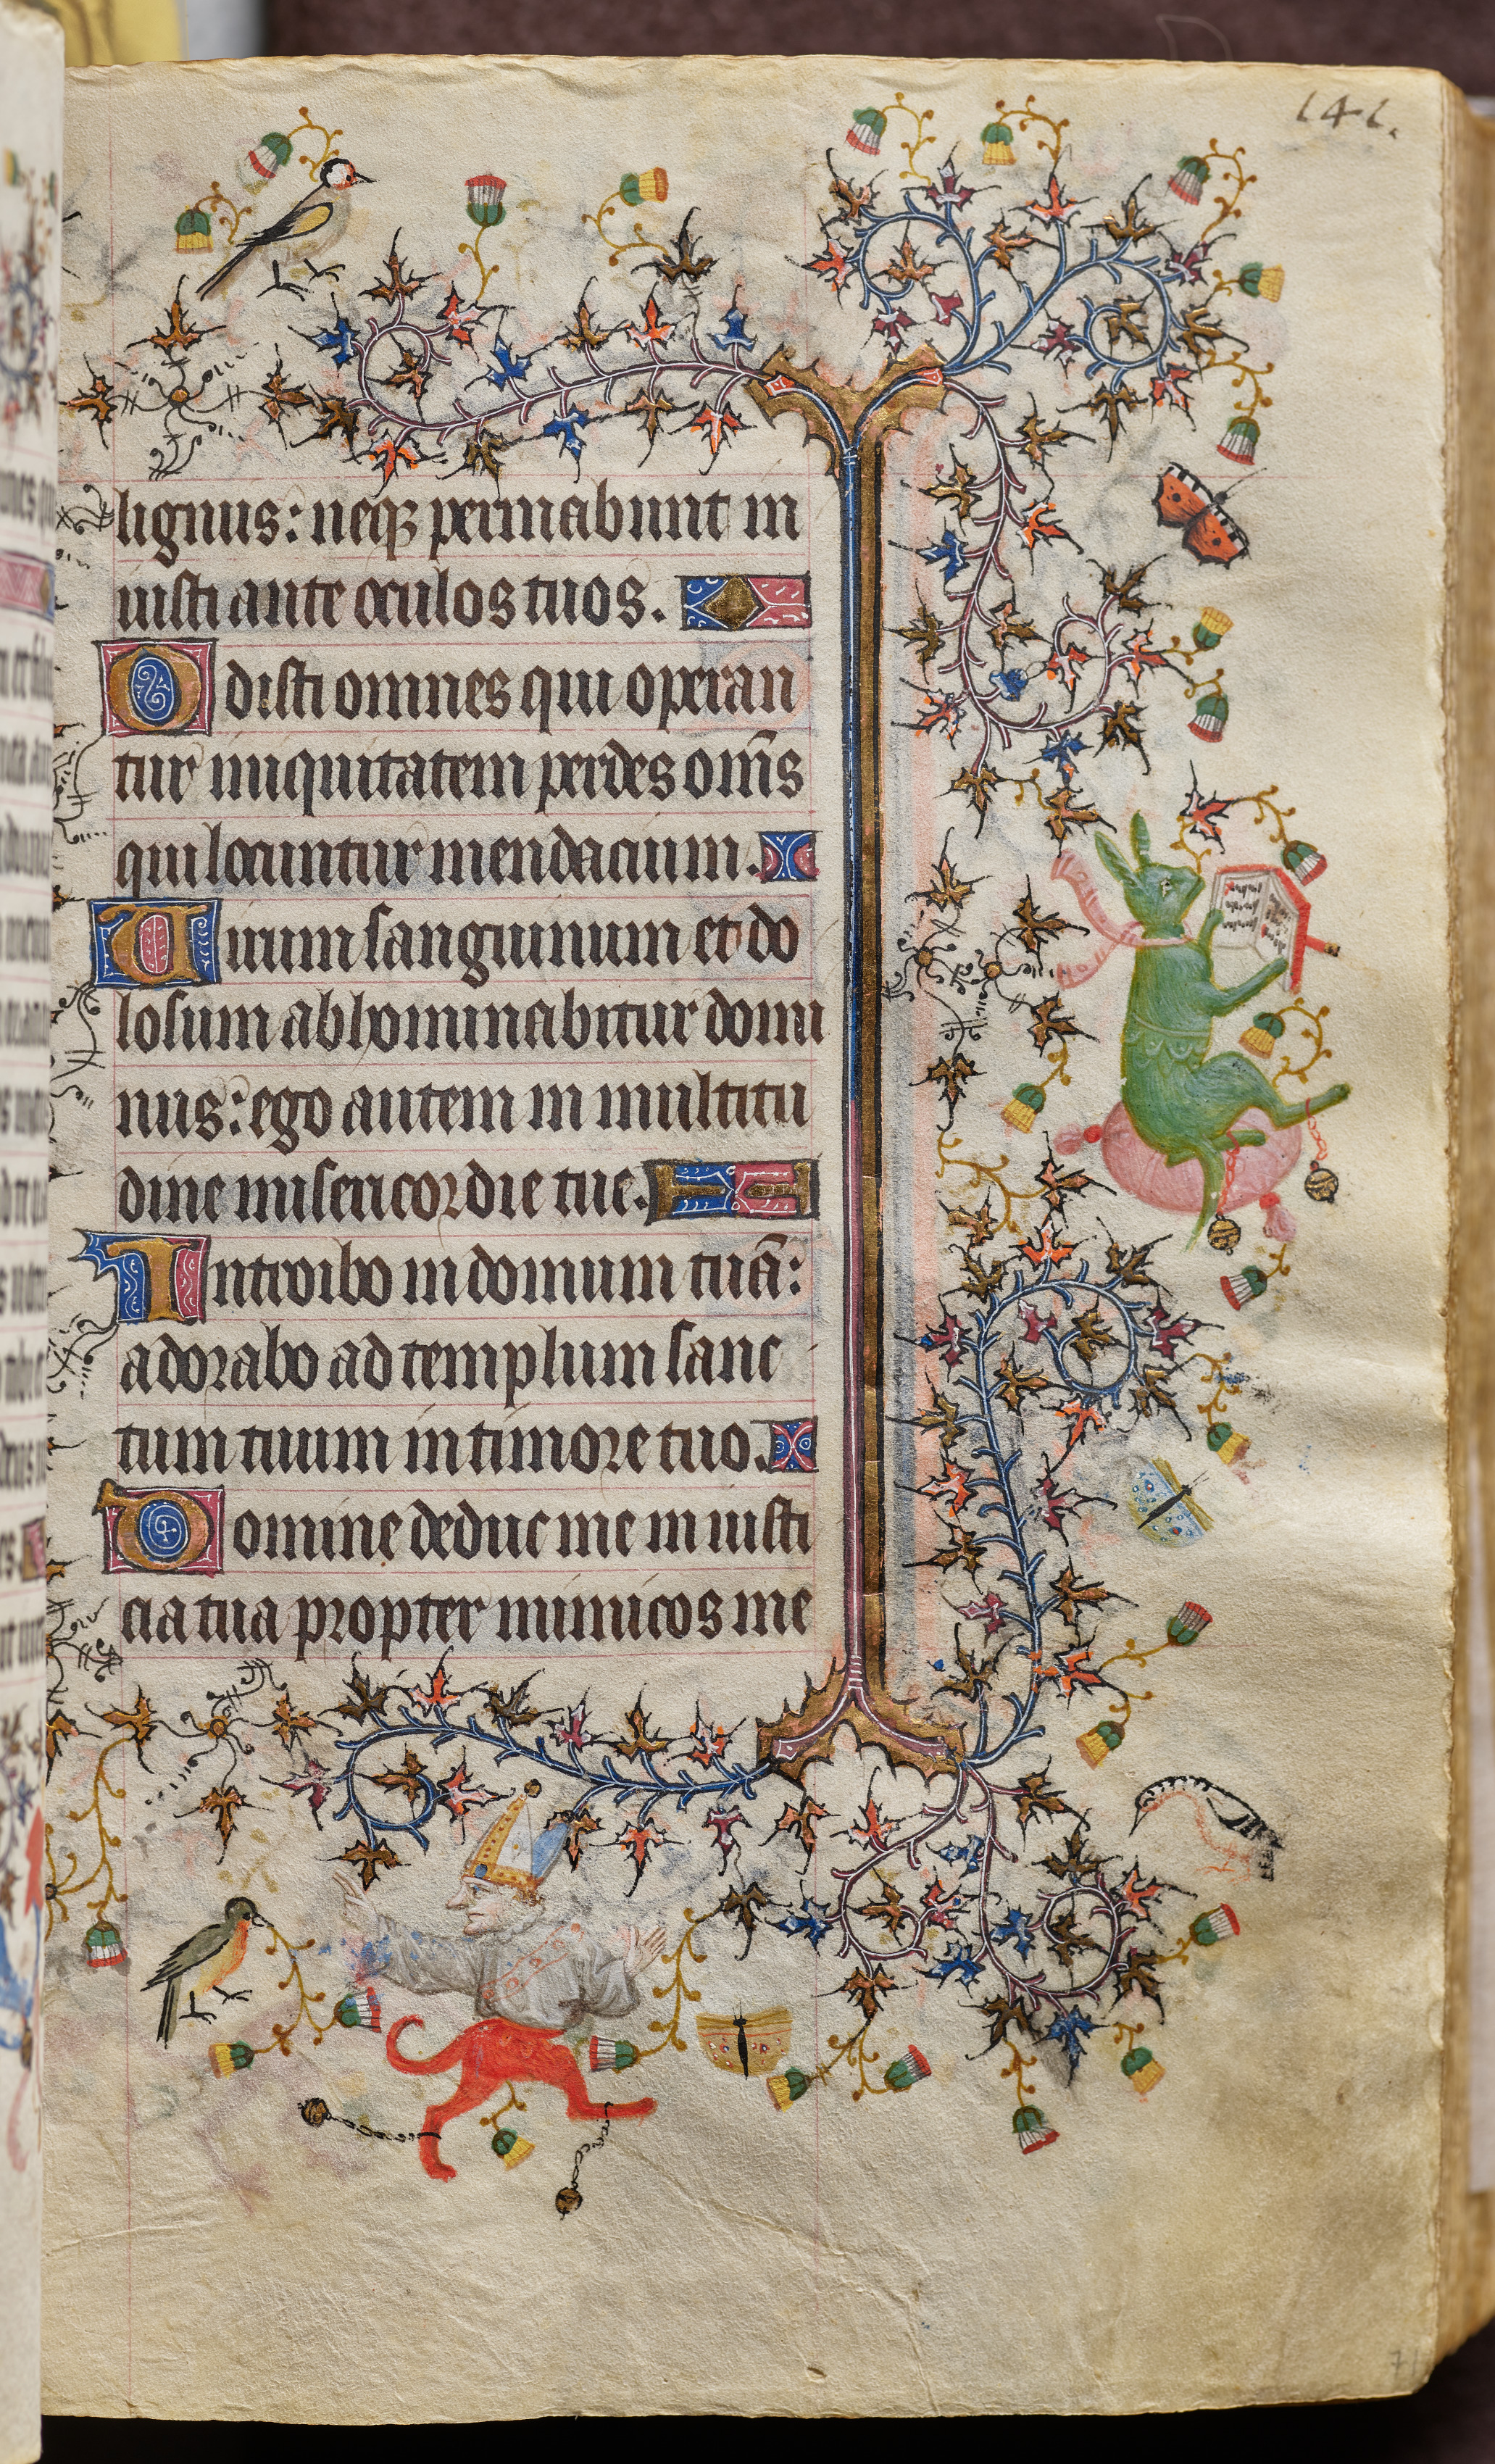 141.
lignus: neqꝫ permabunt in
iusti ante oculos tuos.
Odisti omnes qui operan
tur iniquitatem perdes om̄s
qui locuntur mendacium.
Uirum sanguinum et do
losum abhominabitur domi
nus: ego autem in multitu
dine misericordie tue.
Introibo in domum tuā:
adorabo ad templum sanc
tum tuum in timore tuo.
Domine deduc me in iusti
cia tua propter inimicos me
71